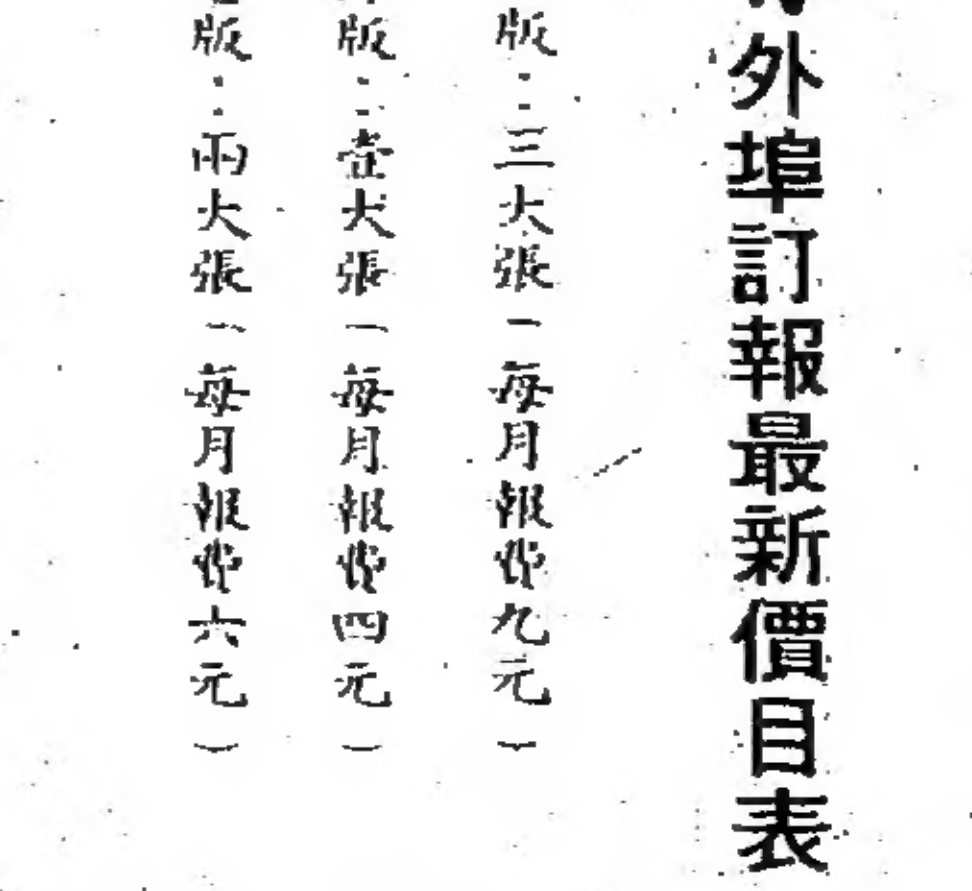 外埠訂報最新價目表
版：三大張（每月報費九元）
版：壹大張（每月報費四元）
版：兩大張（每月報費六元）